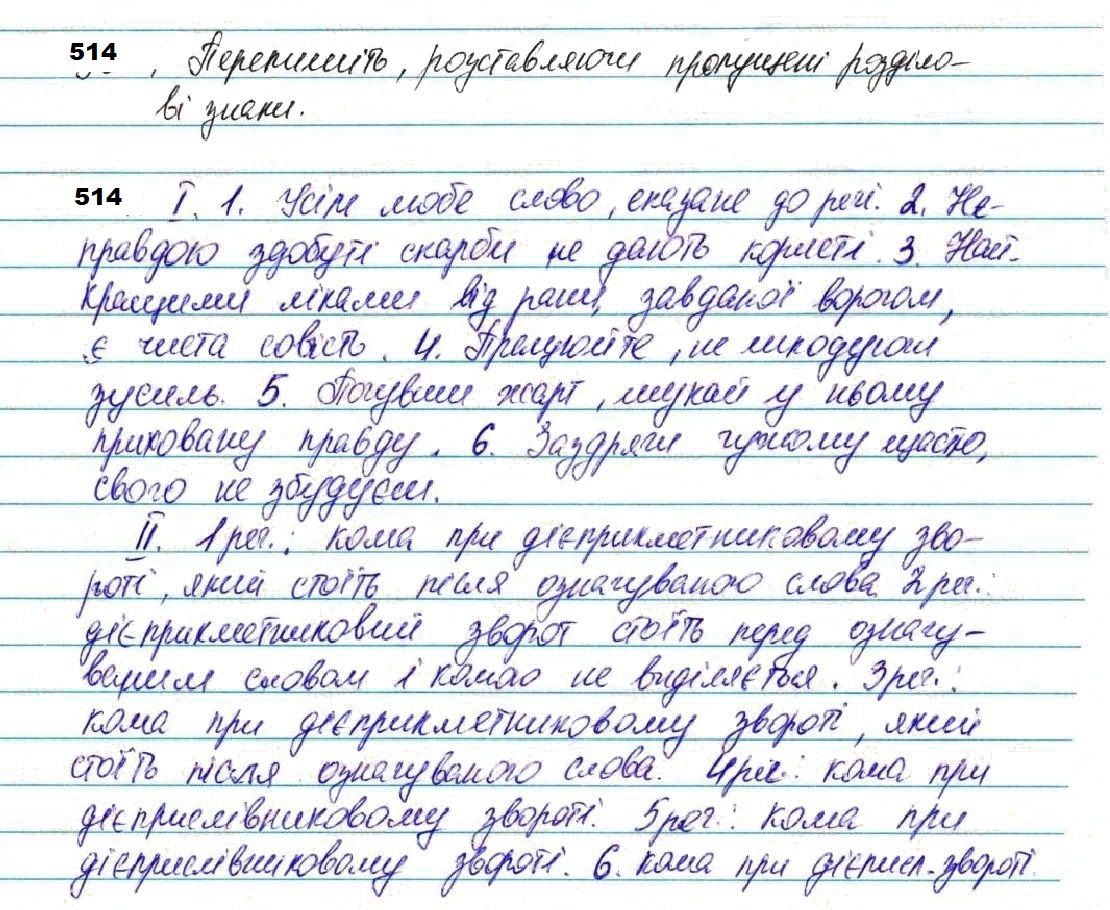 514 , Перепишіть, розставляючи пропущені розділо-
ві знаки.
514 I. 1. Усім любе слово, сказане до речі. 2. Не-
правдою здобуті скарби не дають користі. 3. Най-
кращими ліками від рани, завданої ворогом,
є чиста совість. 4. Працюйте, не шкодуючи
зусиль. 5. Почувши жарт, шукай у ньому
приховану правду. 6. Заздрячи чужому щастю,
свого не збудуєш.
II. 1 реч.: кома при дієприкметниковому зво-
роті, який стоїть після означуваного слова 2 реч.:
дієприкметниковий зворот стоїть перед означу-
ваним словом і комою не виділяється. 3 реч.:
кома при дієприкметниковому звороті, який
стоїть після означуваного слова. 4 реч.: кома при
дієприслівниковому звороті. 5 реч.: кома при
дієприслівниковому звороті. 6. кома при дієприсл. звороті.